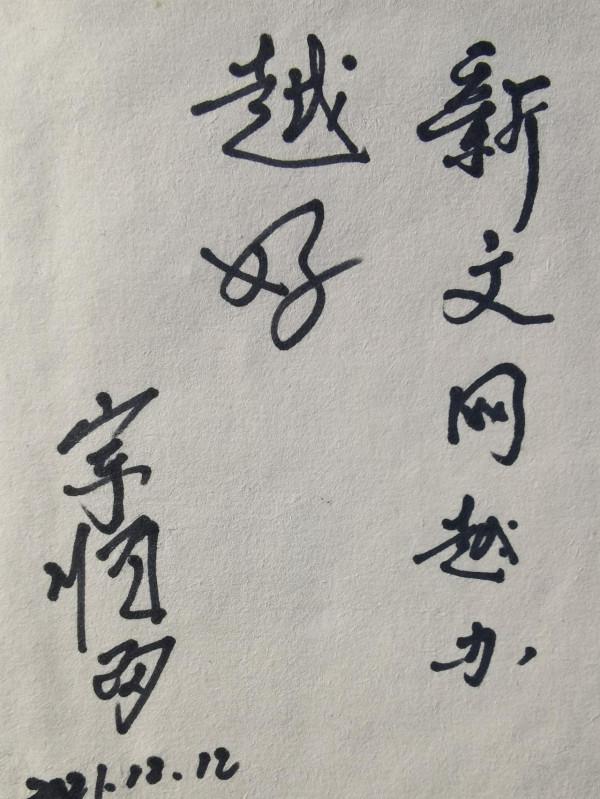 新文网越办
越好
宗恒
2021.12.12